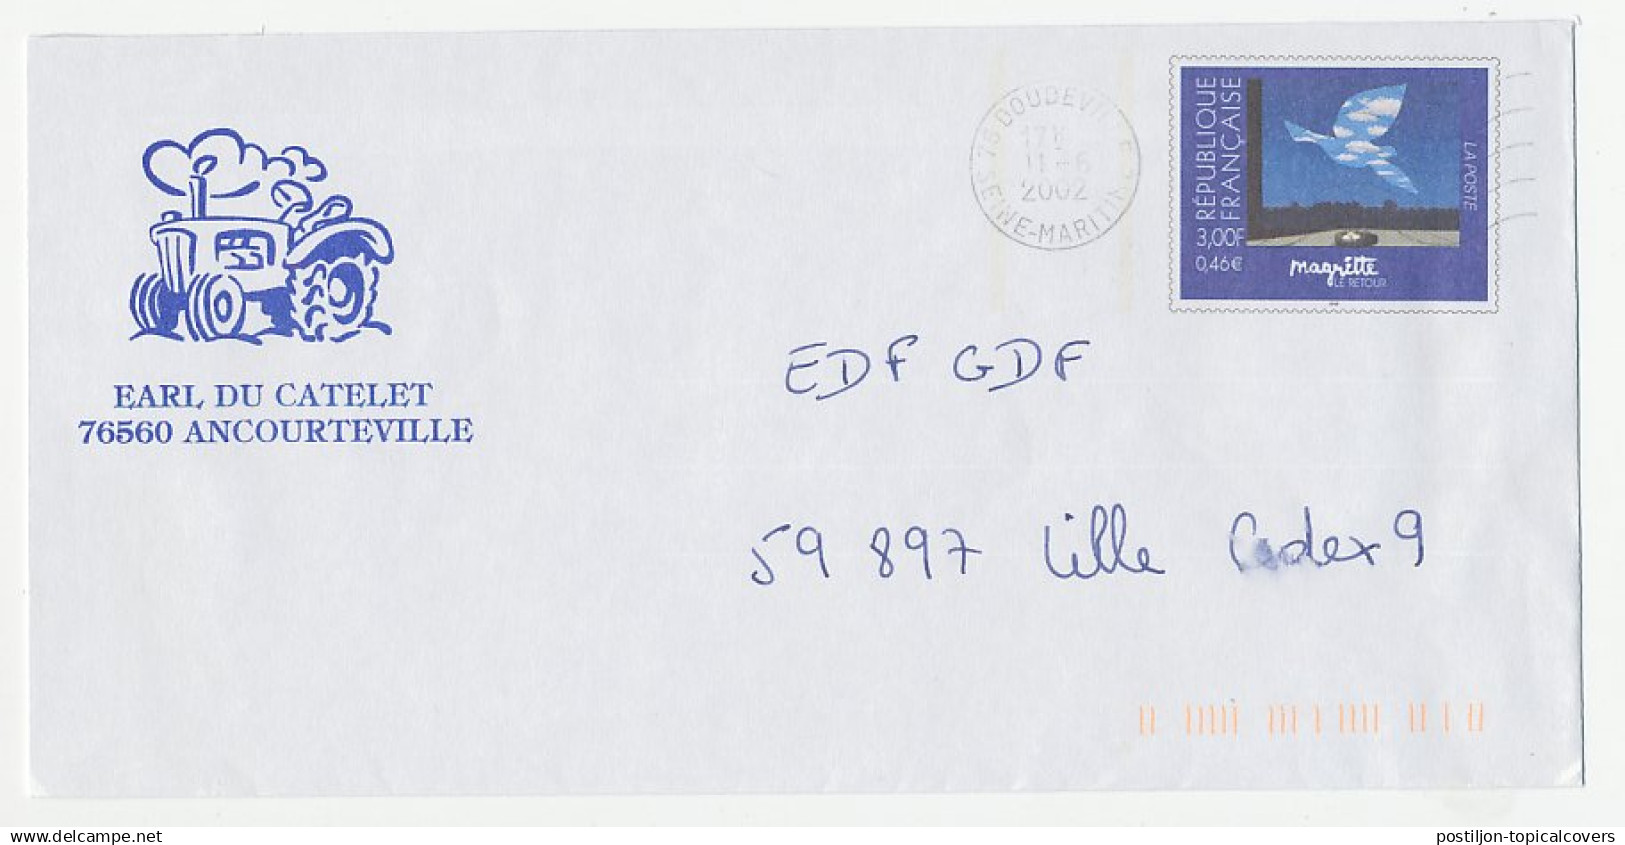 EARL DU CATELET
76560 ANCOURTEVILLE
76 DOUDEVILLE
11-6
2002
SEINE-MARITIME
RÉPUBLIQUE
FRANÇAISE
3,00F
0,46€
LA POSTE
magritte
LE RETOUR
EDF GDF
59 897 Lille Cedex 9
delcampe.net
postiljon-topicalcovers